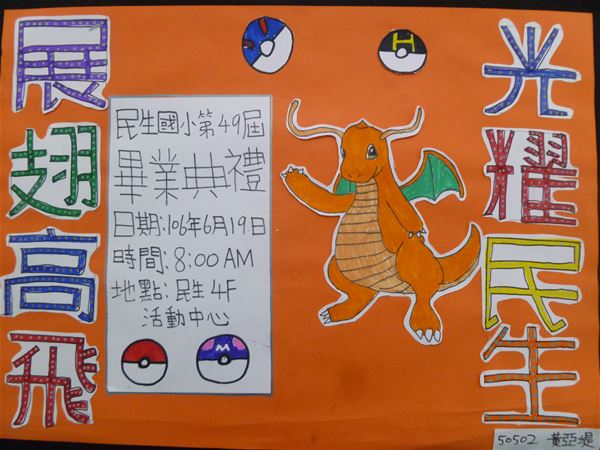 光耀民生
展翅高飛
民生國小第49屆
畢業典禮
日期:106年6月19日
時間:8:00AM
地點:民生4F
活動中心
H
M
50502 黃亞堤